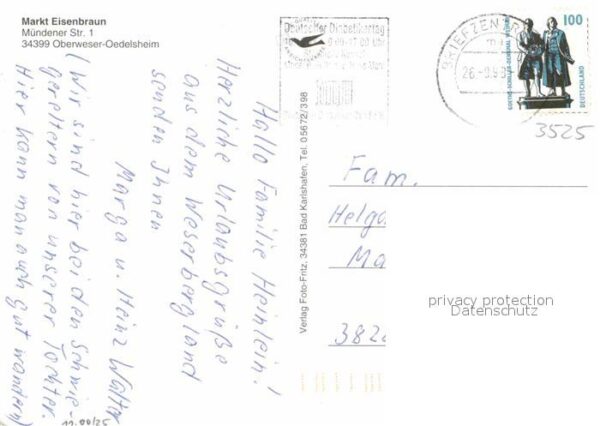 Markt Eisenbraun
Mündener Str. 1
34399 Oberweser-Oedelsheim
Hallo Familie Heinlein!
Herzliche Urlaubsgrüße
aus dem Weserbergland
senden Ihnen
Marga u. Heinz Walter
(Wir sind hier bei den Schwie-
gereltern von unserer Tochter.
Hier kann man auch gut wandern)
11.04/25
Verlag Foto-Fritz, 34381 Bad Karlshafen, Tel. 05672/398
Deutscher
BRIEFZENTR
100
GOETHE-SCHILLER-DENKMAL
DEUTSCHLAND
3525
Fam.
Helga
Ma
privacy protection
Datenschutz
382